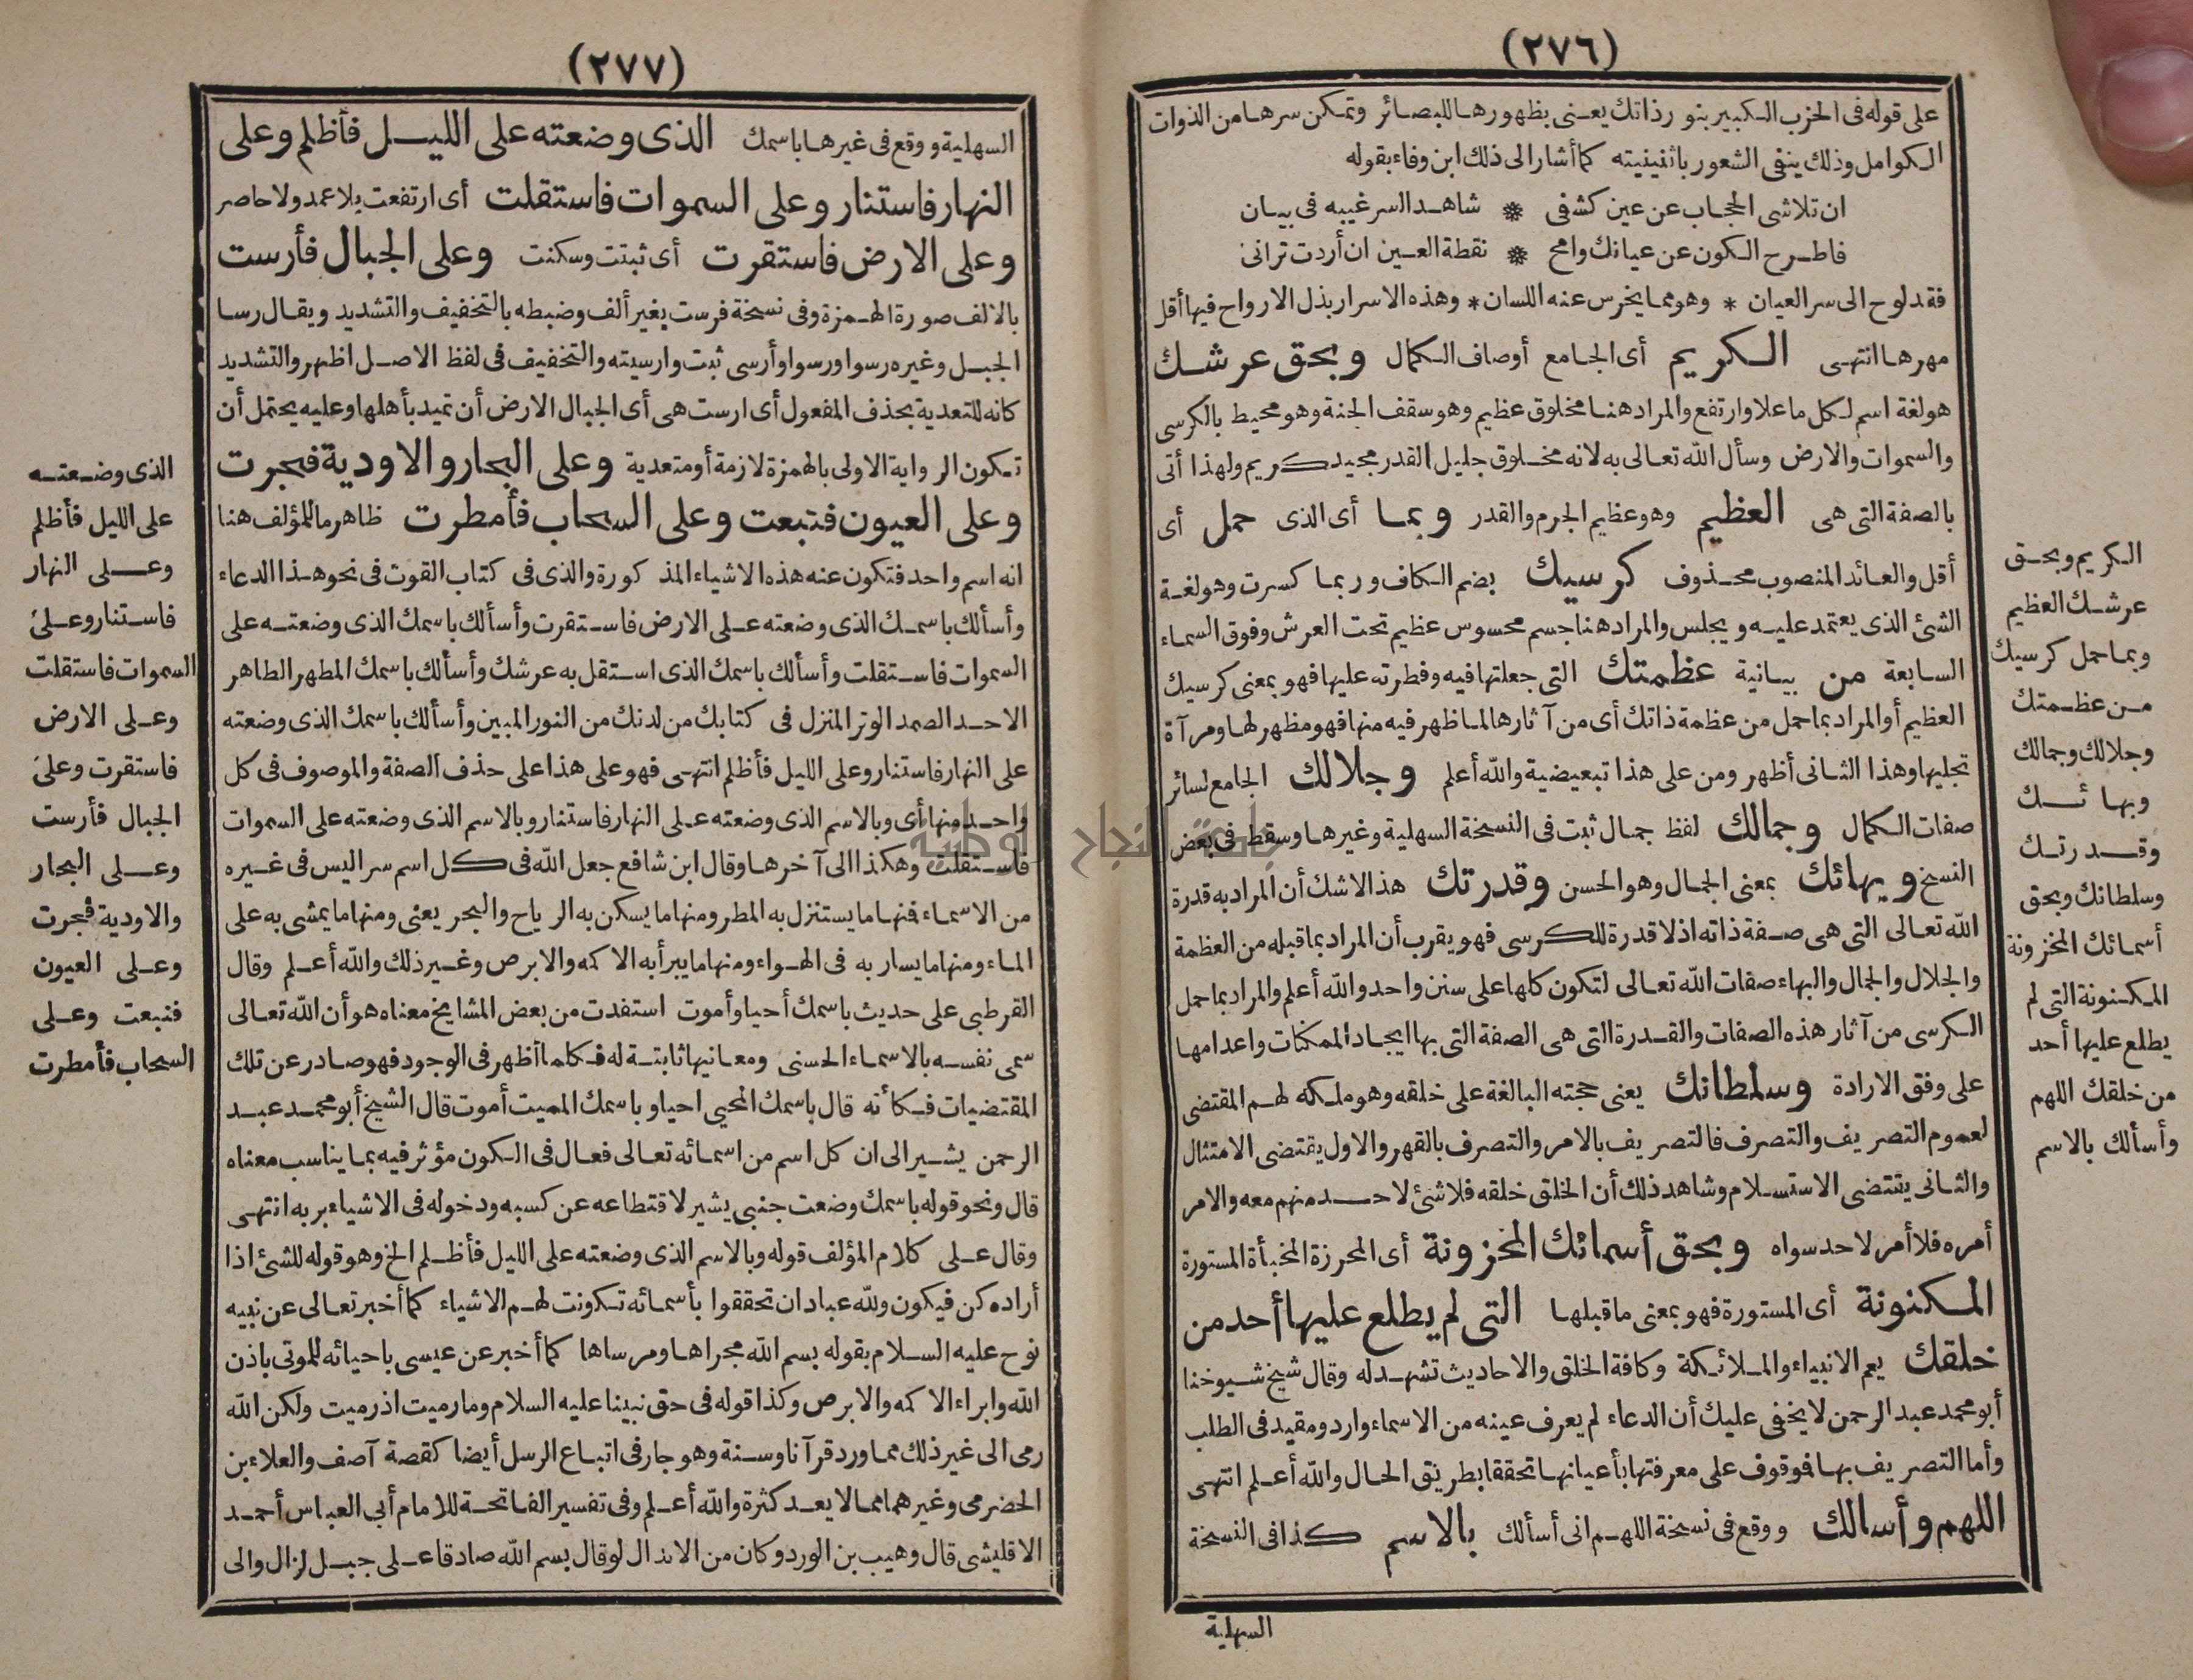 (٢٧٦)
على قوله فى الحزب الكبير بنور ذاتك يعنى بظهورها للبصائر وتمكن سرها من الذوات
الكوامل وذلك ينفى الشعور باثنينيته كما أشار الى ذلك ابن وفاء بقوله
ان تلاشى الحجاب عن عين كشفى * شاهد السر غيبه فى بيان
فاطرح الكون عن عيانك وامح * نقطة العين ان أردت ترانى
فقد لوح الى سر العيان * وهو مما يخرس عنه اللسان * وهذه الاسرار بذل الارواح فيها أقل
مهرها انتهى الكريم أى الجامع أوصاف الكمال وبحق عرشك
هو لغة اسم لكل ما علا وارتفع والمراد هنا مخلوق عظيم وهو سقف الجنة وهو محيط بالكرسى
والسموات والارض وسأل الله تعالى به لانه مخلوق جليل القدر مجيد كريم ولهذا أتى
بالصفة التى هى العظيم وهو عظيم الجرم والقدر وبما أى الذى حمل أى
أقل والعائد المنصوب محذوف كرسيك بضم الكاف وربما كسرت وهو لغة
الشئ الذى يعتمد عليه ويجلس والمراد هنا جسم محسوس عظيم تحت العرش وفوق السماء
السابعة من بيانية عظمتك التى جعلتها فيه وفطرته عليها فهو بمعنى كرسيك
العظيم أو المراد بما حمل من عظمة ذاتك أى من آثارها لما ظهر فيه منها فهو مظهر لها ومرآة
تجليها وهذا الثانى أظهر ومن على هذا تبعيضية والله أعلم وجلالك الجامع لسائر
صفات الكمال وجمالك لفظ جمال ثبت فى النسخة السهلية وغيرها وسقط فى بعض
النسخ وبهائك بمعنى الجمال وهو الحسن وقدرتك هذا لاشك أن المراد به قدرة
الله تعالى التى هى صفة ذاته اذ لا قدرة للكرسى فهو يقرب أن المراد بما قبله من العظمة
والجلال والجمال والبهاء صفات الله تعالى لتكون كلها على سنن واحد والله أعلم والمراد بما حمل
الكرسى من آثار هذه الصفات والقدرة التى هى الصفة التى بها ايجاد الممكنات واعدامها
على وفق الارادة وسلطانك يعنى حجته البالغة على خلقه وهو ملكه لهم المقتضى
لعموم التصريف والتصرف فالتصريف بالامر والتصرف بالقهر والاول يقتضى الامتثال
والثانى يقتضى الاستسلام وشاهد ذلك أن الخلق خلقه فلا شئ لاحد منهم معه والامر
أمره فلا أمر لاحد سواه وبحق أسمائك المخزونة أى المحرزة المخبأة المستورة
المكنونة أى المستورة فهو بمعنى ما قبلها التى لم يطلع عليها أحد من
خلقك يعم الانبياء والملائكة وكافة الخلق والاحاديث تشهد له وقال شيخ شيوخنا
أبو محمد عبد الرحمن لا يخفى عليك أن الدعاء لم يعرف عينه من الاسماء وارد ومقيد فى الطلب
وأما التصريف بها فموقوف على معرفتها بأعيانها تحققا بطريق الحال والله أعلم انتهى
اللهم وأسالك ووقع فى نسخة اللهم انى أسألك بالاسم كذا فى النسخة
السهلية
الكريم وبحق
عرشك العظيم
وبما حمل كرسيك
من عظمتك
وجلالك وجمالك
وبهائك
وقدرتك
وسلطانك وبحق
أسمائك المخزونة
المكنونة التى لم
يطلع عليها أحد
من خلقك اللهم
وأسألك بالاسم
(٢٧٧)
السهلية ووقع فى غيرها باسمك الذى وضعته على الليل فأظلم وعلى
النهار فاستنار وعلى السموات فاستقلت أى ارتفعت بلا عمد ولا حاصر
وعلى الارض فاستقرت أى ثبتت وسكنت وعلى الجبال فأرست
بالالف صورة الهمزة وفى نسخة فرست بغير ألف وضبطه بالتخفيف والتشديد ويقال رسا
الجبل وغيره رسوا ورسوا وأرسى ثبت وارسيته والتخفيف فى لفظ الاصل اظهر والتشديد
كانه للتعدية بحذف المفعول أى ارست هى أى الجبال الارض أن تميد بأهلها وعليه يحتمل أن
تكون الرواية الاولى بالهمزة لازمة أو متعدية وعلى البحار والاودية فجرت
وعلى العيون فنبعت وعلى السحاب فأمطرت ظاهر ما للمؤلف هنا
انه اسم واحد فتكون عنه هذه الاشياء المذكورة والذى فى كتاب القوت فى نحو هذا الدعاء
وأسألك باسمك الذى وضعته على الارض فاستقرت وأسألك باسمك الذى وضعته على
السموات فاستقلت وأسألك باسمك الذى استقل به عرشك وأسألك باسمك المطهر الطاهر
الاحد الصمد الوتر المنزل فى كتابك من لدنك من النور المبين وأسألك باسمك الذى وضعته
على النهار فاستنار وعلى الليل فأظلم انتهى فهو على هذا على حذف الصفة والموصوف فى كل
واحد منها أى وبالاسم الذى وضعته على النهار فاستنار وبالاسم الذى وضعته على السموات
فاستقلت وهكذا الى آخرها وقال ابن شافع جعل الله فى كل اسم سر اليس فى غيره
من الاسماء فمنها ما يستنزل به المطر ومنها ما يسكن به الرياح والبحر يعنى ومنها ما يمشى به على
الماء ومنها ما يسار به فى الهواء ومنها ما يبرأ به الاكمه والابرص وغير ذلك والله أعلم وقال
القرطبى على حديث باسمك أحيا وأموت استفدت من بعض المشايخ معناه هو أن الله تعالى
سمى نفسه بالاسماء الحسنى ومعانيها ثابتة له فكلما أظهر فى الوجود فهو صادر عن تلك
المقتضيات فكأنه قال باسمك المحيى احيا وباسمك المميت أموت قال الشيخ أبو محمد عبد
الرحمن يشير الى ان كل اسم من اسمائه تعالى فعال فى الكون مؤثر فيه بما يناسب معناه
قال ونحو قوله باسمك وضعت جنبى يشير لاقتطاعه عن كسبه ودخوله فى الاشياء بربه انتهى
وقال على كلام المؤلف قوله وبالاسم الذى وضعته على الليل فأظلم الخ وهو قوله للشئ اذا
أراده كن فيكون ولله عباد ان تحققوا بأسمائه تكونت لهم الاشياء كما أخبر تعالى عن نبيه
نوح عليه السلام بقوله بسم الله مجراها ومرساها كما أخبر عن عيسى باحيائه للموتى باذن
الله وابراء الاكمه والابرص وكذا قوله فى حق نبينا عليه السلام وما رميت اذ رميت ولكن الله
رمى الى غير ذلك مما ورد قرآنا وسنة وهو جار فى اتباع الرسل أيضا كقصة آصف والعلاء بن
الحضرمى وغيرهما مما لا يعد كثرة والله أعلم وفى تفسير الفاتحة للامام أبى العباس أحمد
الاقليشى قال وهيب بن الورد وكان من الابدال لو قال بسم الله صادقا على جبل لزال والى
الذى وضعته
على الليل فأظلم
وعلى النهار
فاستنار وعلى
السموات فاستقلت
وعلى الارض
فاستقرت وعلى
الجبال فأرست
وعلى البحار
والاودية فجرت
وعلى العيون
فنبعت وعلى
السحاب فأمطرت
جامعة النجاح الوطنية